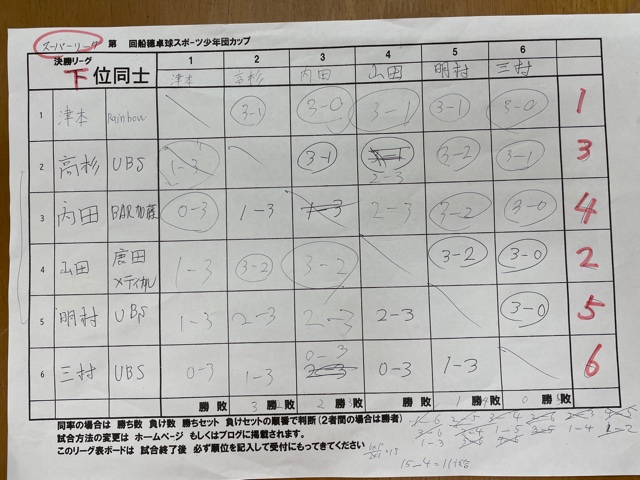 スーパーリーグ 第 回船穂卓球スポーツ少年団カップ
決勝リーグ 1 2 3 4 5 6
下位同士 津本 高杉 内田 山田 明村 三村
1 津本 Rainbow 3-0 3-1 3-1 3-0 1
3-1
2 高杉 UBS 1-3 3-1 3-2 3-1 3
2-3
3 内田 0-3 1-3 2-3 3-2 3-0 4
4 山田 唐田 1-3 3-2 3-2 3-2 3-0 2
メディカル
5 明村 UBS 1-3 2-3 2-3 2-3 3-0 5
0-3
6 三村 UBS 0-3 1-3 0-3 1-3 6
勝 敗 勝 敗 勝 敗 勝 敗 勝 敗 勝 敗
同率の場合は 勝ち数 負け数 勝ちセット 負けセットの順番で判断(2者間の場合は勝者)
試合方法の変更は ホームページ もしくはブログに掲載されます。
このリーグ表ボードは 試合終了後 必ず順位を記入して受付にもってきてください
15-4=11